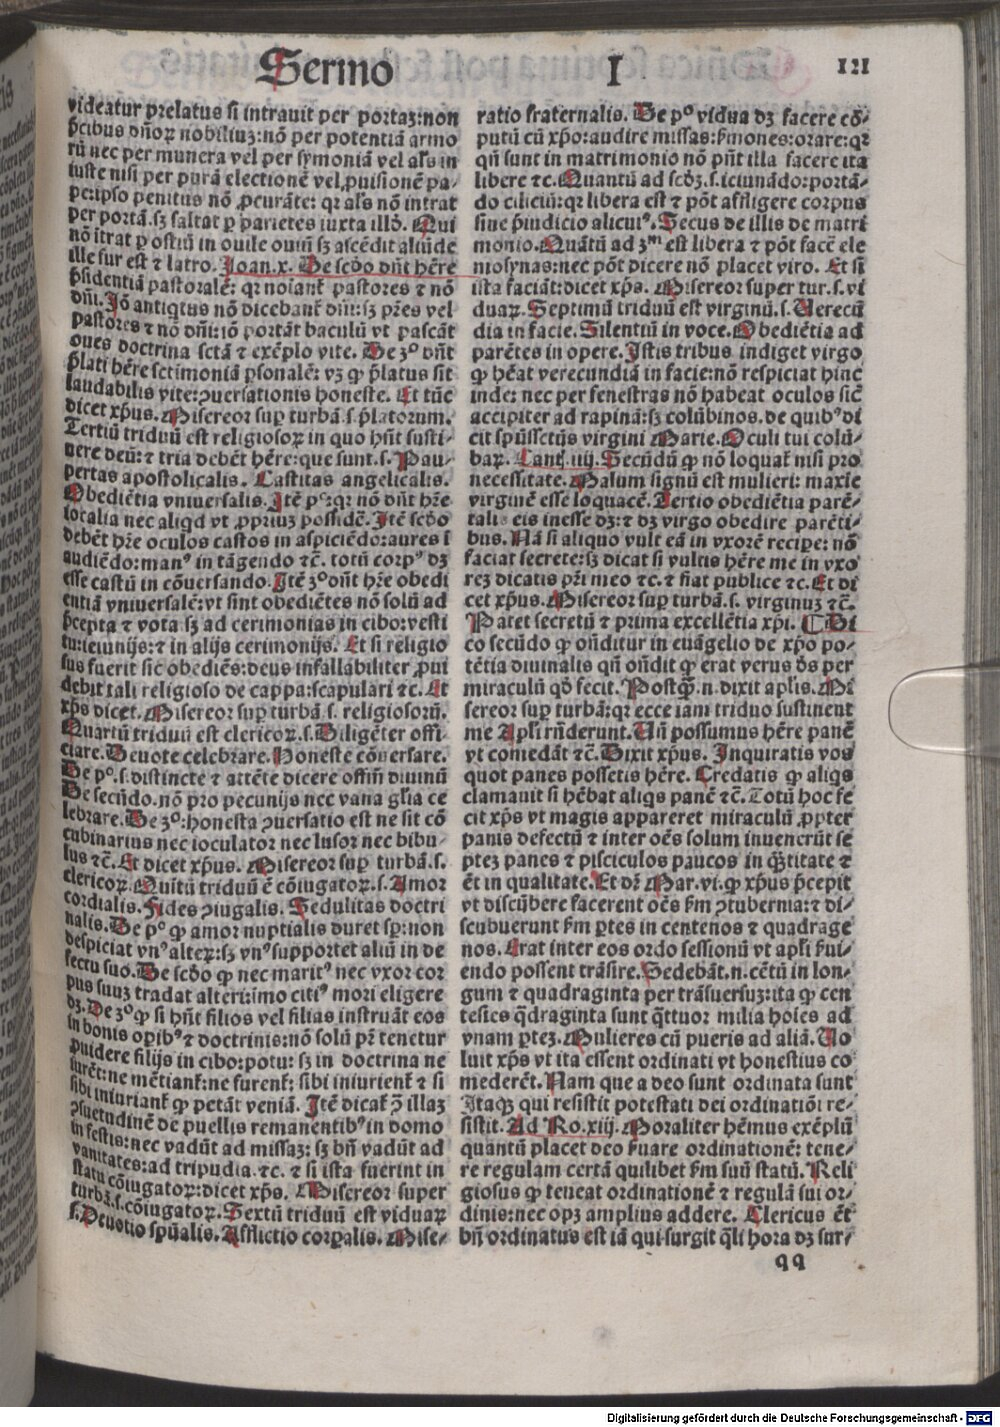 Sermo I 121
videatur prelatus si intrauit per portaꝫ: non
p̄cibus dn̄oꝝ nobiliuꝫ: nō per potentiā armo
rū nec per munera vel per symoniā vel al's in
iuste nisi per purā electionē vel ꝓuisionē pa-
pe: ipso penitus nō ꝓcurāte: qꝛ al's nō intrat
per portā. sꝫ saltat ꝑ parietes iuxta illd̓. Qui
nō ītrat ꝑ ostiū in ouile ouiū sꝫ ascēdit aliūde
ille fur est ⁊ latro. Joan. x. De scd̓o dn̄t hr̄e
p̄sidentiā pastoralē: qꝛ noīant̄ pastores ⁊ nō
dn̄i. Jō antiqtus nō dicebant̄ dn̄i: sꝫ pr̄es vel
pastores ⁊ nō dn̄i: iō portāt baculū vt pascāt
oues doctrina sctā ⁊ exēplo vite. De 3º dn̄t
p̄lati hr̄e sctimoniā ꝑsonalē: vꝫ ꝙ p̄latus sit
laudabilis vite: ↄuersationis honeste. Et tūc
dicet xp̄us. Misereor suꝑ turbā. s. p̄latorum.
Tertiū triduū est religiosoꝝ in quo hn̄t susti-
nere deū: ⁊ tria debēt hr̄e: que sunt. s. Pau-
pertas apostolicalis. Castitas angelicalis.
Obediētia vniuersalis. Jtē pº: qꝛ nō dn̄t hr̄e
localia nec aliqd vt ꝓpriuꝫ possidē. Jtē scd̓o
debēt hr̄e oculos castos in aspiciēdo: aures ī
audiēdo: manꝰ in tāgendo ⁊c̄. totū corpꝰ dꝫ
esse castū in cōuersando. Jtē 3º dn̄t hr̄e obedi
entiā vniuersalē: vt sint obediētes nō solū ad
p̄cepta ⁊ vota sꝫ ad cerimonias in cibo: vesti
tu: ieiunijs: ⁊ in alijs cerimonijs. Et si religio
sus fuerit sic obediēs: deus infallabiliter ꝓui
debit tali religioso de cappa: scapulari ⁊c. Et
xp̄s dicet. Misereor suꝑ turbā. s. religiosorū.
Quartū triduū est clericoꝝ. s. Diligēter offi
ciare. Deuote celebrare. Honeste cōuersare.
De pº. s. distincte ⁊ attēte dicere offm̄ diuinū
De secūdo. nō pro pecunijs nec vana gl'ia ce
lebrare. De 3º: honesta ↄuersatio est ne sit cō
cubinarius nec ioculator nec lusor nec bibu-
lus ⁊c̄. Et dicet xp̄us. Misereor suꝑ turbā. s.
clericoꝝ. Quītū triduū ē cōiugatoꝝ. s. Amor
cordialis. Fides ↄiugalis. Sedulitas doctri
nalis. De pº ꝙ amor nuptialis duret sꝑ: non
despiciat vnꝰ alteꝝ: sꝫ vnꝰ supportet aliū in de
fectu suo. De scd̓o ꝙ nec maritꝰ nec vxor cor
pus suuꝫ tradat alteri: imo citiꝰ mori eligere
dꝫ. De 3º ꝙ si hn̄t filios vel filias instruāt eos
in bonis oꝑibꝰ ⁊ doctrinis: nō solū pr̄ tenetur
ꝓuidere filijs in cibo: potu: sꝫ in doctrina ne
iurēt: ne mētiant̄: ne furent̄: sibi iniurient̄ ⁊ si
sibi iniuriant̄ ꝙ petāt veniā. Jtē dicat̄ ↄ̄ illaꝫ
ↄsuetudinē de puellis remanentibꝰ in domo
in festis: nec vadūt ad missaꝫ: sꝫ bn̄ vadūt ad
vanitates: ad tripudia. ⁊c. ⁊ si ista fuerint in
statu cōiugatoꝝ: dicet xp̄s. Misereor super
turbā. s. cōiugatoꝝ. Sextū triduū est viduaꝝ
s. Deuotio spūalis. Afflictio corꝑalis. Mise-
ratio fraternalis. De pº vidua dꝫ facere cō-
putū cū xp̄o: audire missas: s̄mones: orare: qꝛ
qn̄ sunt in matrimonio nō pn̄t illa facere ita
libere ⁊c. Quantū ad scd̓ꝫ. s. ieiunādo: portā-
do ciliciū: qꝛ libera est ⁊ pōt affligere corpus
sine p̄iudicio alicuiꝰ. Secus de illis de matri
monio. Quātū ad 3ᵐ est libera ⁊ pōt facē ele
mosynas: nec pōt dicere nō placet viro. Et si
ista faciāt: dicet xp̄s. Misereor super tur. s. vi
duaꝝ. Septimū triduū est virginū. s. Verecū
dia in facie. Silentiū in voce. Obediētia ad
parētes in opere. Jstis tribus indiget virgo
ꝙ hēat verecundiā in facie: nō respiciat hinc
inde: nec per fenestras nō habeat oculos sic̄
accipiter ad rapinā: sꝫ colūbinos. de quibꝰ di
cit spūssctūs virgini Marie. Oculi tui colū-
baꝝ. Cant̄. iiij. Secūdū ꝙ nō loquat̄ nisi pro
necessitate. Malum signū est mulieri: maxīe
virginē esse loquacē. Tertio obediētia parē-
talis eis inesse dꝫ: ⁊ dꝫ virgo obedire parēti-
bus. Nā si aliquo vult eā in vxorē recipe: nō
faciat secrete: sꝫ dicat si vultis hr̄e me in vxo
reꝫ dicatis pr̄i meo ⁊c. ⁊ fiat publice ⁊c. Et di
cet xp̄us. Misereor suꝑ turbā. s. virginuꝫ ⁊c̄.
Patet secretū ⁊ prima excellētia xp̄i. ¶ Di
co secūdo ꝙ on̄ditur in euāgelio de xp̄o po-
tētia diuinalis qn̄ on̄dit ꝙ erat verus d̓s per
miraculū qd̓ fecit. Postꝙ̄. n. dixit apl'is. Mi
sereor suꝑ turbā: qꝛ ecce iam triduo sustinent
me Apl'i rn̄derunt. Vn̄ possumus hr̄e panē
vt comedāt ⁊c̄. Dixit xp̄us. Jnquiratis vos
quot panes possetis hr̄e. Credatis ꝙ aliqs
clamauit si hēbat aliqs panē ⁊c̄. Totū hoc fe
cit xp̄s vt magis appareret miraculū ꝓpter
panis defectū ⁊ inter oēs solum inuenerūt se
pteꝫ panes ⁊ pisciculos paucos in q̄titate ⁊
ēt in qualitate. Et dr̄ Mar. vi. ꝙ xp̄us p̄cepit
vt discūbere facerent oēs s̄m ↄtubernia: ⁊ di-
scubuerunt s̄m ꝑtes in centenos ⁊ quadrage
nos. Erat inter eos ordo sessionū vt apl'i s̄ui-
endo possent trāsire. Sedebāt. n. cētū in lon-
gum ⁊ quadraginta per trāsuersuꝫ: ita ꝙ cen
tesies q̄draginta sunt q̄ttuor milia hoīes ad
vnam ꝑteꝫ. Mulieres cū pueris ad aliā. Vo
luit xp̄s vt ita essent ordinati vt honestius co
mederēt. Nam que a deo sunt ordinata sunt
Itaqꝫ qui resistit potestati dei ordinatiōi re-
sistit. Ad Ro. xiij. Moraliter hēmus exēplū
quantū placet deo s̄uare ordinationē: tene-
re regulam certā quilibet s̄m suū statū. Reli
giosus ꝙ teneat ordinationē ⁊ regulā sui or-
dinis: nec opꝫ amplius addere. Clericus ēt
bn̄ ordinatus est iā qui surgit q̄li hora dꝫ sur-
qq
Digitalisierung gefördert durch die Deutsche Forschungsgemeinschaft - DFG